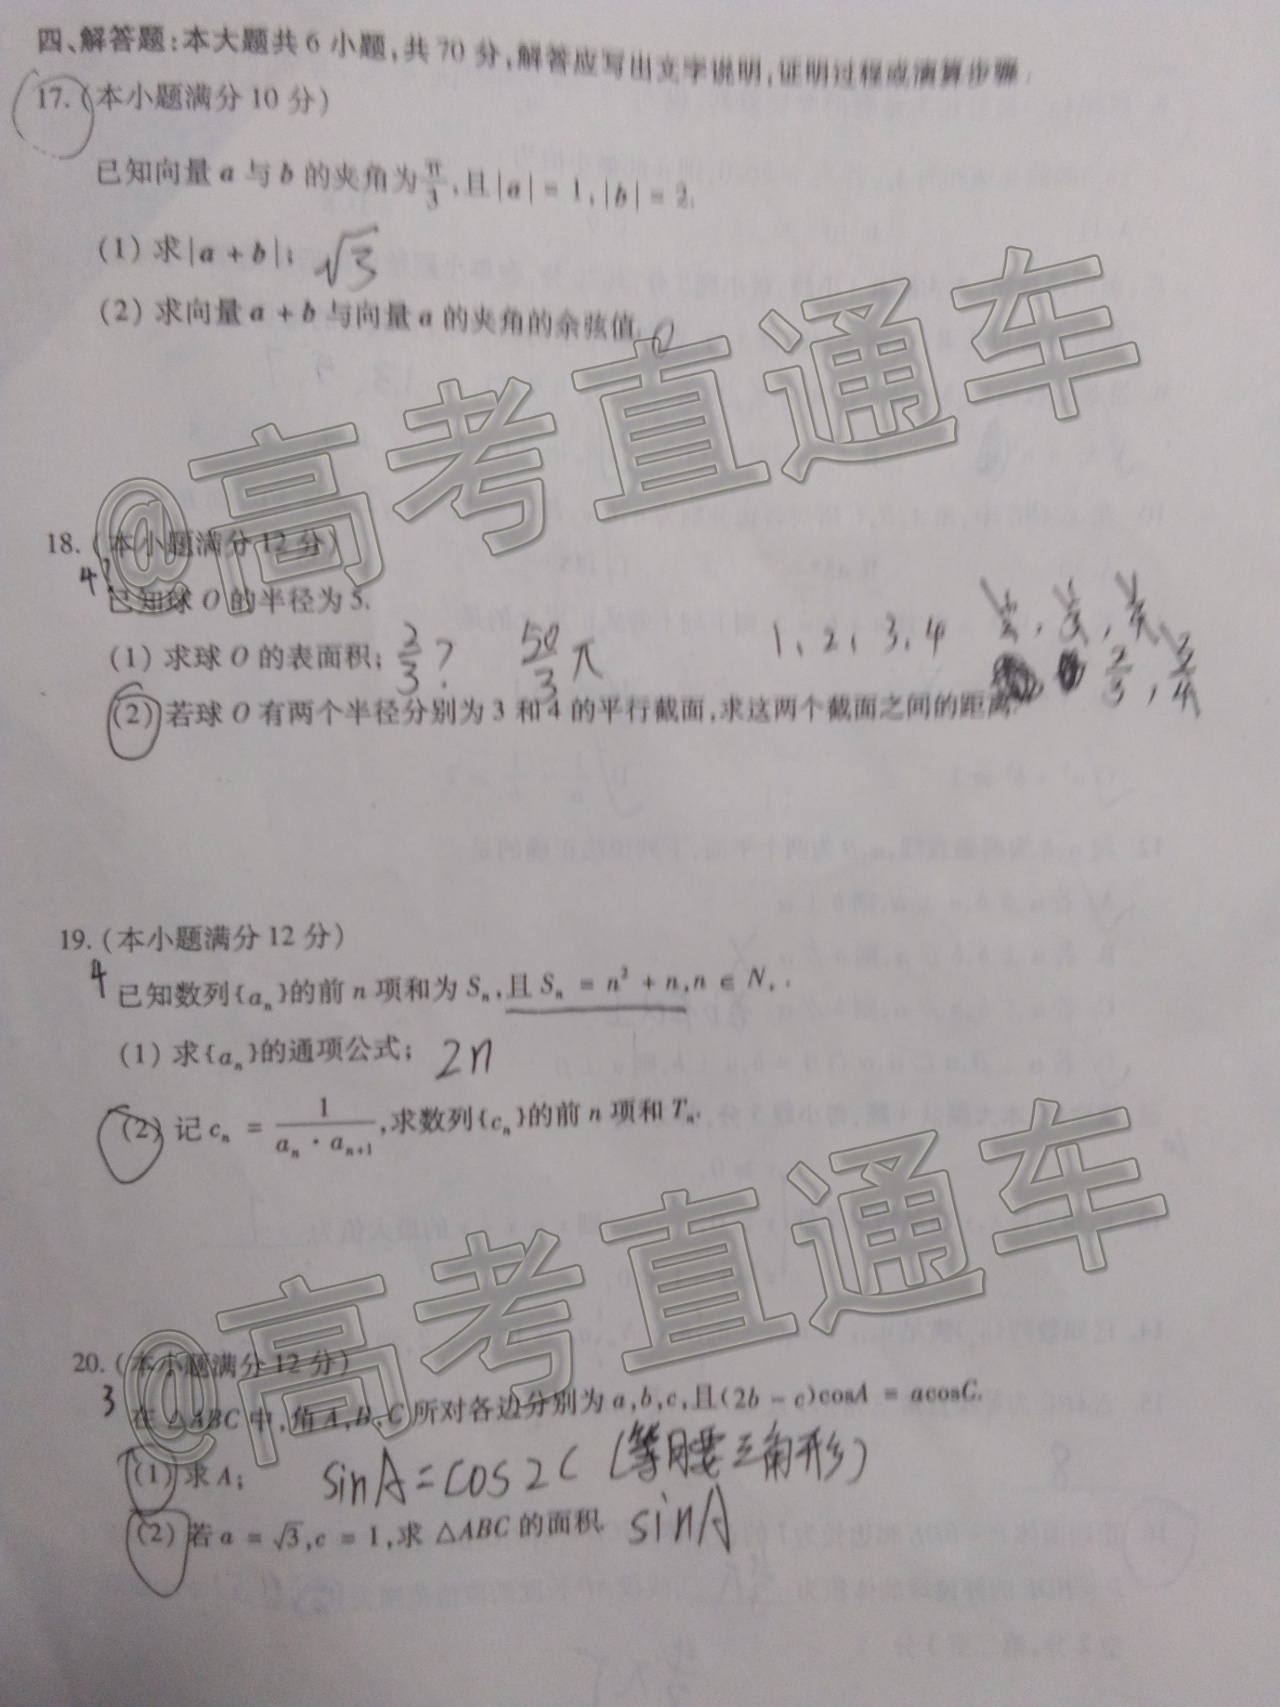 四、解答题:本大题共6小题,共70分,解答应写出文字说明,证明过程或演算步骤.
17.(本小题满分10分)
已知向量a与b的夹角为π/3,且|a|=1,|b|=2.
(1)求|a+b|; √3
(2)求向量a+b与向量a的夹角的余弦值. 0
@高考直通车
18.(本小题满分12分)
4
已知球O的半径为5.
(1)求球O的表面积; 2/3? 50/3 π 1、2、3、4 1/2, 1/3, 1/4
2/3, 3/4
(2)若球O有两个半径分别为3和4的平行截面,求这两个截面之间的距离.
19.(本小题满分12分)
4
已知数列{aₙ}的前n项和为Sₙ,且Sₙ=n²+n,n∈N₊.
(1)求{aₙ}的通项公式; 2n
(2)记cₙ=1/(aₙ·aₙ₊₁),求数列{cₙ}的前n项和Tₙ.
@高考直通车
20.(本小题满分12分)
3
在△ABC中,角A,B,C所对各边分别为a,b,c,且(2b-c)cosA=acosC.
(1)求A; sinA=cos2C(等腰三角形)
(2)若a=√3,c=1,求△ABC的面积. sinA